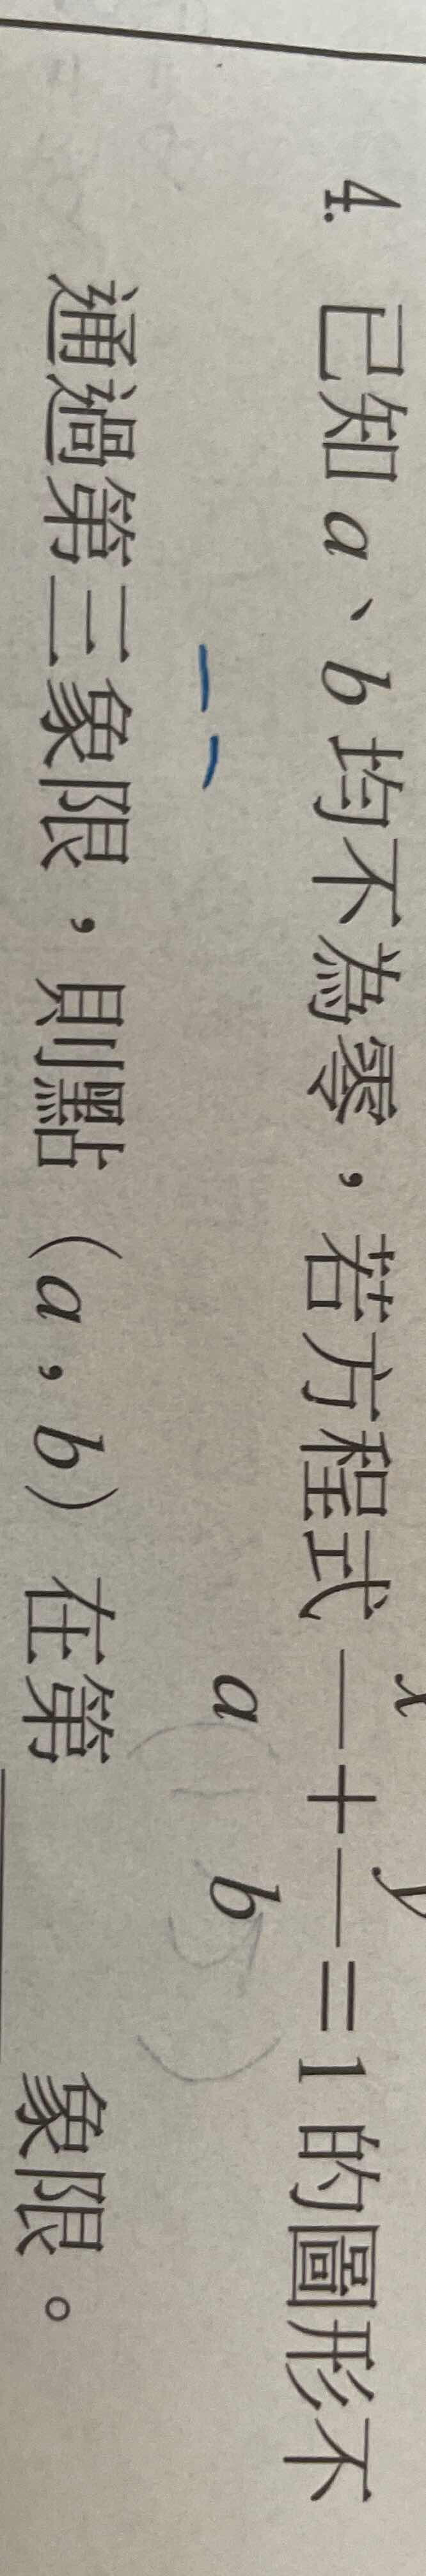 4. 已知 a、b 均不為零，若方程式 x/a + y/b = 1 的圖形不
通過第三象限，則點（a，b）在第____象限。